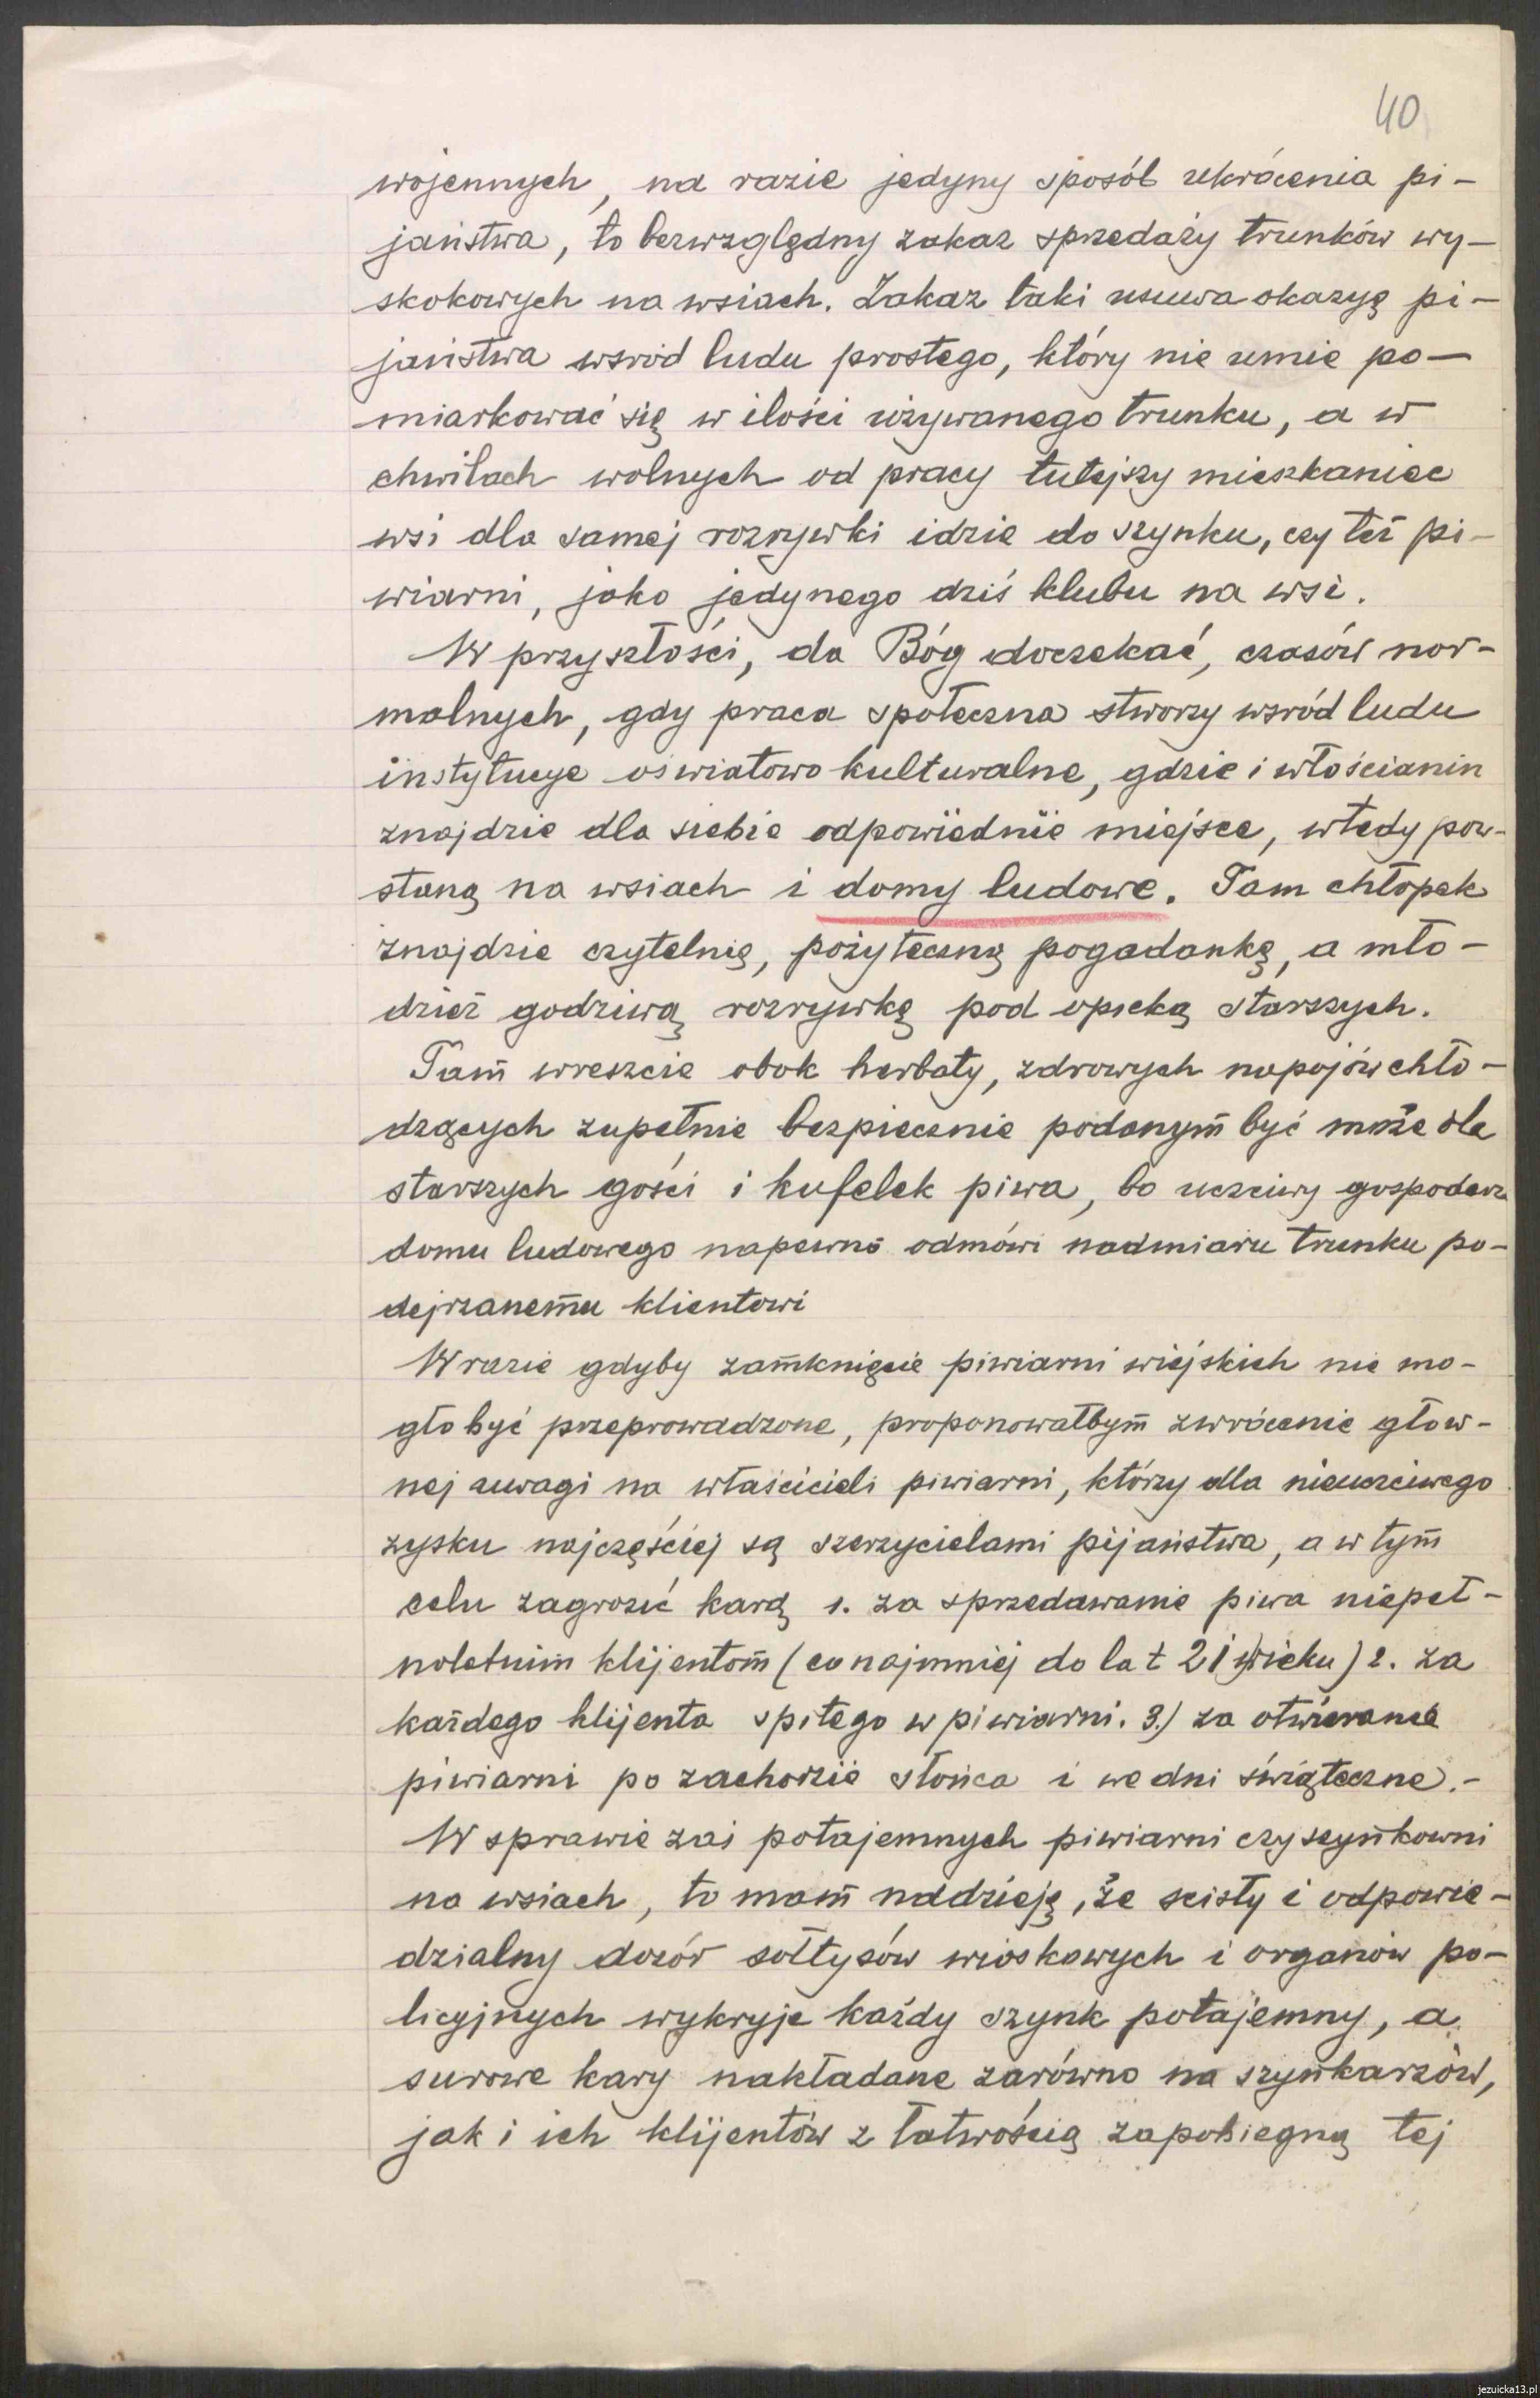 40
wojennych, na razie jedyny sposób ukrócenia pi-
jaństwa, to bezwzględny zakaz sprzedaży trunków wy-
skokowych na wsiach. Zakaz taki usuwa okazyę pi-
jaństwa wsród ludu prostego, który nie umie po-
miarkować się w ilości używanego trunku, a w
chwilach wolnych od pracy tutejszy mieszkaniec
wsi dla samej rozrywki idzie do szynku, czy też pi-
wiarni, jako jedynego dziś klubu na wsi.
W przyszłości, da Bóg doczekać, czasów nor-
malnych, gdy praca społeczna stworzy wsród ludu
instytucye oswiatowo kulturalne, gdzie i włościanin
znajdzie dla siebie odpowiednie miejsce, wtedy pow-
staną na wsiach i domy ludowe. Tam chłopek
znajdzie czytelnię, pożyteczną pogadankę, a mło-
dzież godziwą rozrywkę pod opieką starszych.
Tam wreszcie obok herbaty, zdrowych napojów chło-
dzących zupełnie bezpiecznie podanym być może dla
starszych gości i kufelek piwa, bo uczciwy gospodarz
domu ludowego napewno odmówi nadmiaru trunku po-
dejrzanemu klientowi
W razie gdyby zamknięcie piwiarni wiejskich nie mo-
gło być przeprowadzone, proponowałbym zwrócenie głow-
nej uwagi na właścicieli piwiarni, którzy dla nieuczciwego
zysku najczęściej są szerzycielami pijaństwa, a w tym
celu zagrozić karą 1. za sprzedawanie piwa niepeł-
noletnim klijentom (co najmniej do lat 21 wieku) 2. za
każdego klijenta spitego w piwiarni. 3.) za otwieranie
piwiarni po zachodzie słońca i we dni świąteczne.-
W sprawie zaś potajemnych piwiarni czy szynkowni
na wsiach, to mam nadzieję, że scisły i odpowie-
dzialny dozór sołtysów wioskowych i organów po-
licyjnych wykryje każdy szynk potajemny, a
surowe kary nakładane zarówno na szynkarzów,
jak i ich klijentów z łatwością zapobiegną tej
jezuicka13.pl